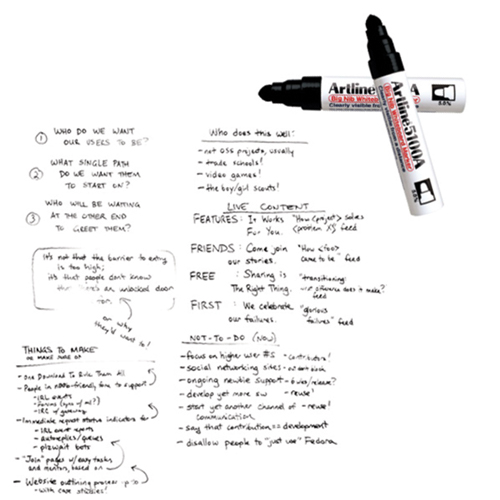 Artline
Big Nib Whiteboard
Clearly visible from
Artline 5100A
Big Nib Whiteboard Marker
1 WHO DO WE WANT
OUR USERS TO BE?
2 WHAT SINGLE PATH
DO WE WANT THEM
TO START ON?
3 WHO WILL BE WAITING
AT THE OTHER END
TO GREET THEM?
It's not that the barrier to entry
is too high;
it's that people don't know
there's an unlocked door
or why
they'd want to!
THINGS TO MAKE
OR MAKE MORE OF
- One Download To Rule Them All
- People in noob-friendly fora to support
- IRL events
- Forums
- IRC gateway
- Immediate request status indicators
- IRL event reports
- autoreplies/queues
- wait bots
- "Join" pages w/ easy tasks,
and mentors, based on
- Website outlining process
- with case studies!
Who does this well:
- not OSS projects, usually
- trade schools!
- video games!
- the boy/girl scouts!
LIVE CONTENT
FEATURES: It Works "How <project> solves
For You. <problem X>" feed
FRIENDS: Come join "How <foo>
our stories. came to be" feed
FREE: Sharing is "transitioning:
The Right Thing. what difference does it make?"
feed
FIRST: We celebrate "glorious
our failures. failures" feed
NOT-TO-DO (NOW)
- focus on higher user #s - contributors!
- social networking sites
- ongoing newbie support - 6 wks/release?
- develop yet more sw - reuse!
- start yet another channel of - reuse!
communication
- say that contribution == development
- disallow people to "just use" Fedora